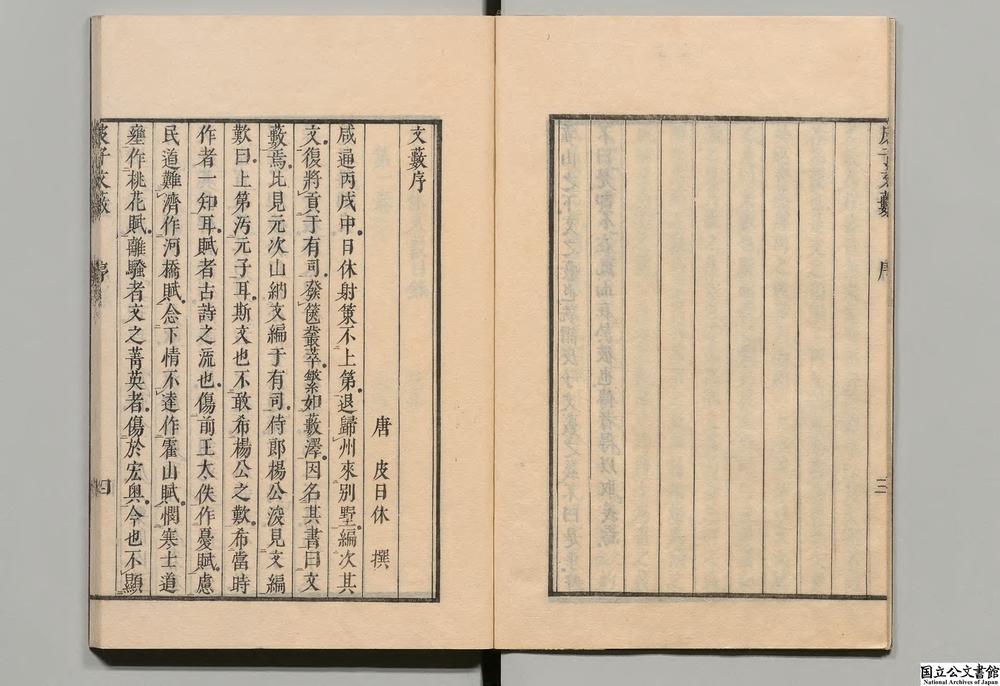 皮子文藪 序 三
文藪序
唐 皮日休 撰
咸通丙戌中日休射策不上第退歸州來別墅編次其
文復將貢于有司發篋叢萃繁如藪澤因名其書曰文
藪焉比見元次山納文編于有司侍郎楊公浚見文編
歎曰上第汚元子耳斯文也不敢希楊公之歎希當時
作者一知耳賦者古詩之流也傷前王太佚作憂賦慮
民道難濟作河橋賦念下情不達作霍山賦憫寒士道
壅作桃花賦離騷者文之菁英者傷於宏奥今也不顯
皮子文藪 序 四
国立公文書館
National Archives of Japan